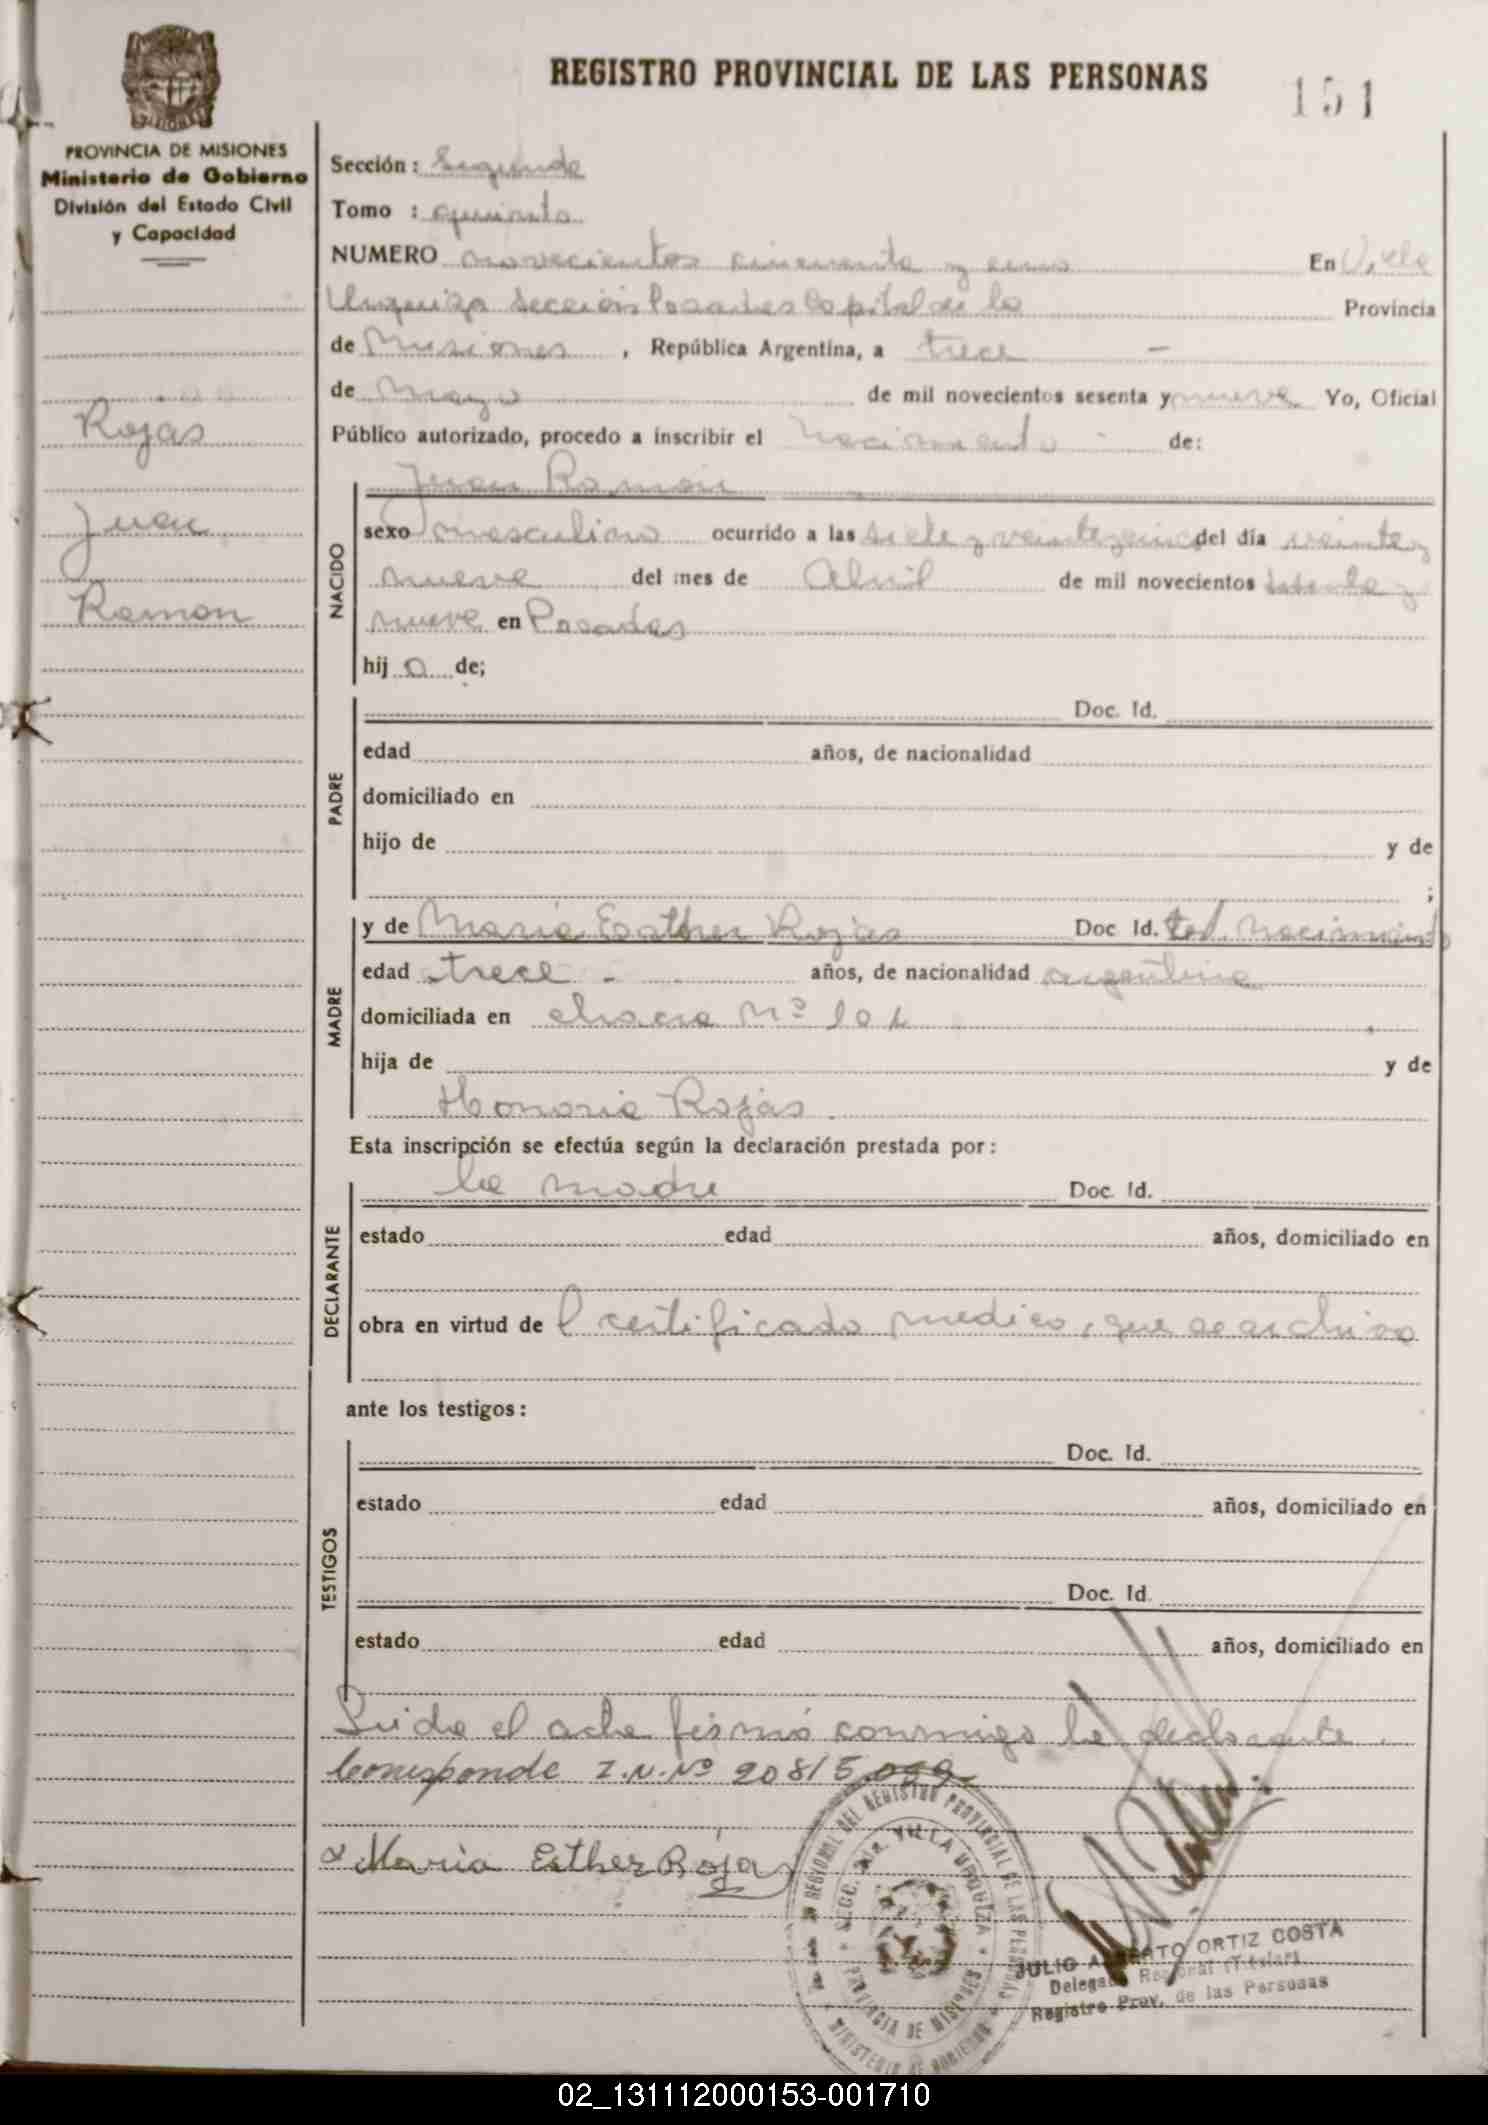 REGISTRO PROVINCIAL DE LAS PERSONAS
151
PROVINCIA DE MISIONES
Ministerio de Gobierno
División del Estado Civil
y Capacidad
Rojas
Juan
Ramon
Sección: Segunda
Tomo : quinto
NUMERO novecientos cincuenta y uno En Villa
Urquiza Sección Posadas Capital de la Provincia
de Misiones, República Argentina, a trece -
de Mayo de mil novecientos sesenta y nueve Yo, Oficial
Público autorizado, procedo a inscribir el Nacimiento - de:
NACIDO
Juan Ramón
sexo masculino ocurrido a las siete y veinte y cinco del día veinte y
nueve del mes de Abril de mil novecientos sesenta y
nueve en Posadas
hij o de;
PADRE
Doc. Id.
edad años, de nacionalidad
domiciliado en
hijo de y de
;
MADRE
y de María Esther Rojas Doc Id. Nacimiento
edad trece - años, de nacionalidad argentina
domiciliada en chacra Nº 101
hija de y de
Honoria Rojas.
Esta inscripción se efectúa según la declaración prestada por:
DECLARANTE
la madre Doc. Id.
estado edad años, domiciliado en
obra en virtud de l certificado medico, que se archiva
ante los testigos:
TESTIGOS
Doc. Id.
estado edad años, domiciliado en
Doc. Id.
estado edad años, domiciliado en
Leida el acta firmó conmigo la declarante.
Corresponde I.N.Nº 20815.099
María Esther Rojas
REGIONAL DEL REGISTRO PROVINCIAL DE LAS PERSONAS
SECC. 2da. VILLA URQUIZA
PROVINCIA DE MISIONES
MINISTERIO DE GOBIERNO
JULIO ALBERTO ORTIZ COSTA
Delegado Regional (Titular)
Registro Prov. de las Personas
02_131112000153-001710